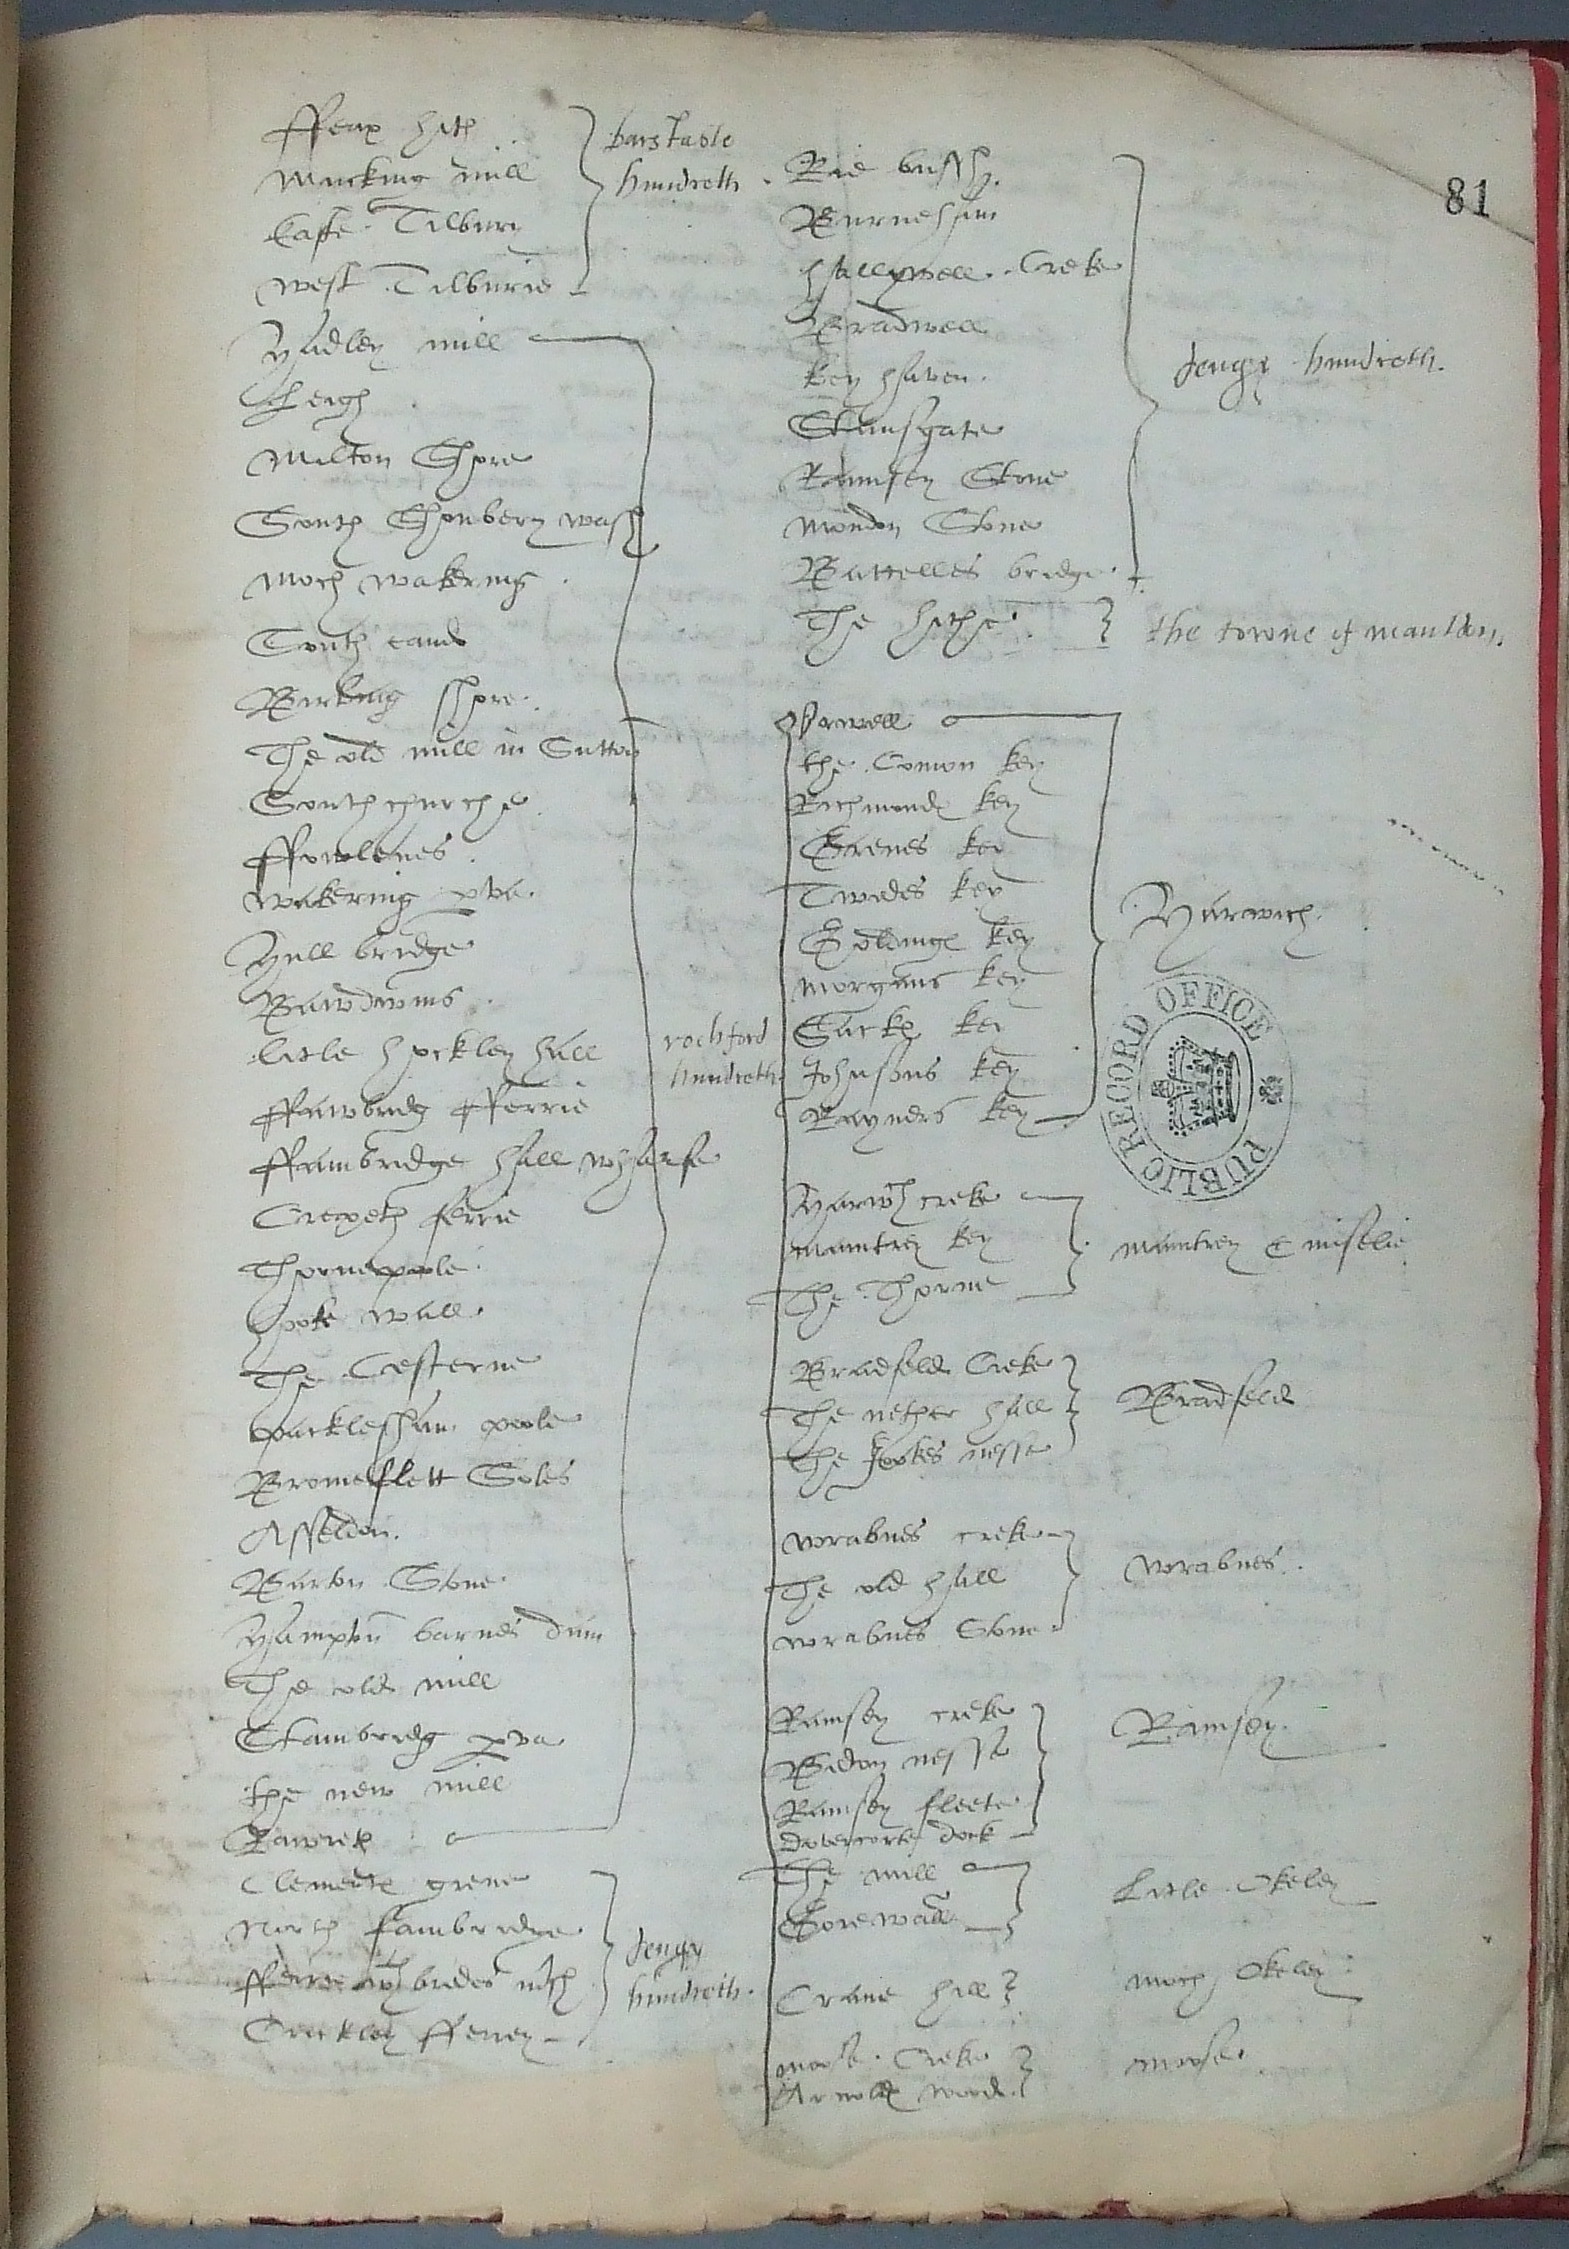 81
hith
Mucking mill
Easte Tilbury
West Tilburie
barstable
hundreth
Hadley mill
Leigh
Milton Shore
South Shoubery wash
Moch wakering
South eand
Barling shore
The old mill in Sutton
Southchurche
ffowlenes
wakering pva
Hull bridge
Bawdwins
Litle hockley hall
ffambridg fferrie
ffambridge hall wharfe
Crixeth ferrie
Thornepoole
hooke wall
The Cesterne
packlesham poole
Bromeflett Soles
Asseldon
Barton Stone
Hampton barnes dum
The old mill
Stambridg pva
the new mill
Rawreth
rochford
hundreth
Clements grene
North fambridge
Crickley fferry
dengy
hundreth
Rie bushy
Burneham
hallywell Creke
Bradwell
key haven
Stansgate
Ramsey Stone
Mondon Stone
Battelles bridge
dengy hundreth
The hithe
the towne of mauldon
Orwell
the Comon key
Richmonds key
Grenes key
Twedes key
Goldings key
Morgans key
Sacks key
Johnsons key
Rayners key
Harwich
Harwch creke
Maintrey key
The Thorne
Maintrey & Mislie
Bradfeld Creke
The nether hall
The Jookes nesse
Bradfeld
Wrabnes creke
The old hall
Wrabnes Stone
Wrabnes
Ramsey creke
nesse
Ramsey fleete
Dovercorte dock
Ramsey
The mill
Gorewall
Litle Okeley
Crane hill
Moch Okeley
Mose Creke
Arnolds wood
Mose
PUBLIC RECORD OFFICE